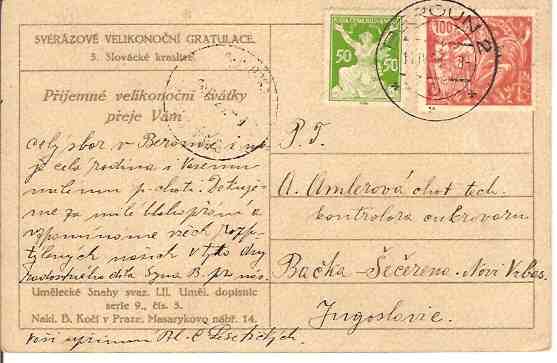 SVÉRÁZOVÉ VELIKONOČNÍ GRATULACE.
5. Slovácké kraslice.
Příjemné velikonoční svátky
přeje Vám
celý sbor v Berouně i
celá rodina i Vašemu
milému
me za milé blahopřání a
vzpomínáme všech
našich v tyto dny
díla Syna B. pro nás.
Umělecké Snahy svaz. Ill. Uměl. dopisnic
serie 9., čís. 5.
Nakl. B. Kočí v Praze, Masarykovo nábř. 14.
Váš upřímný
50
50
100
BEROUN 2
P. T.
A. Amlerová chot tech.
kontrolora cukrovaru
Bačka - Sečereno - Novi Vrbas.
Jugoslavie.